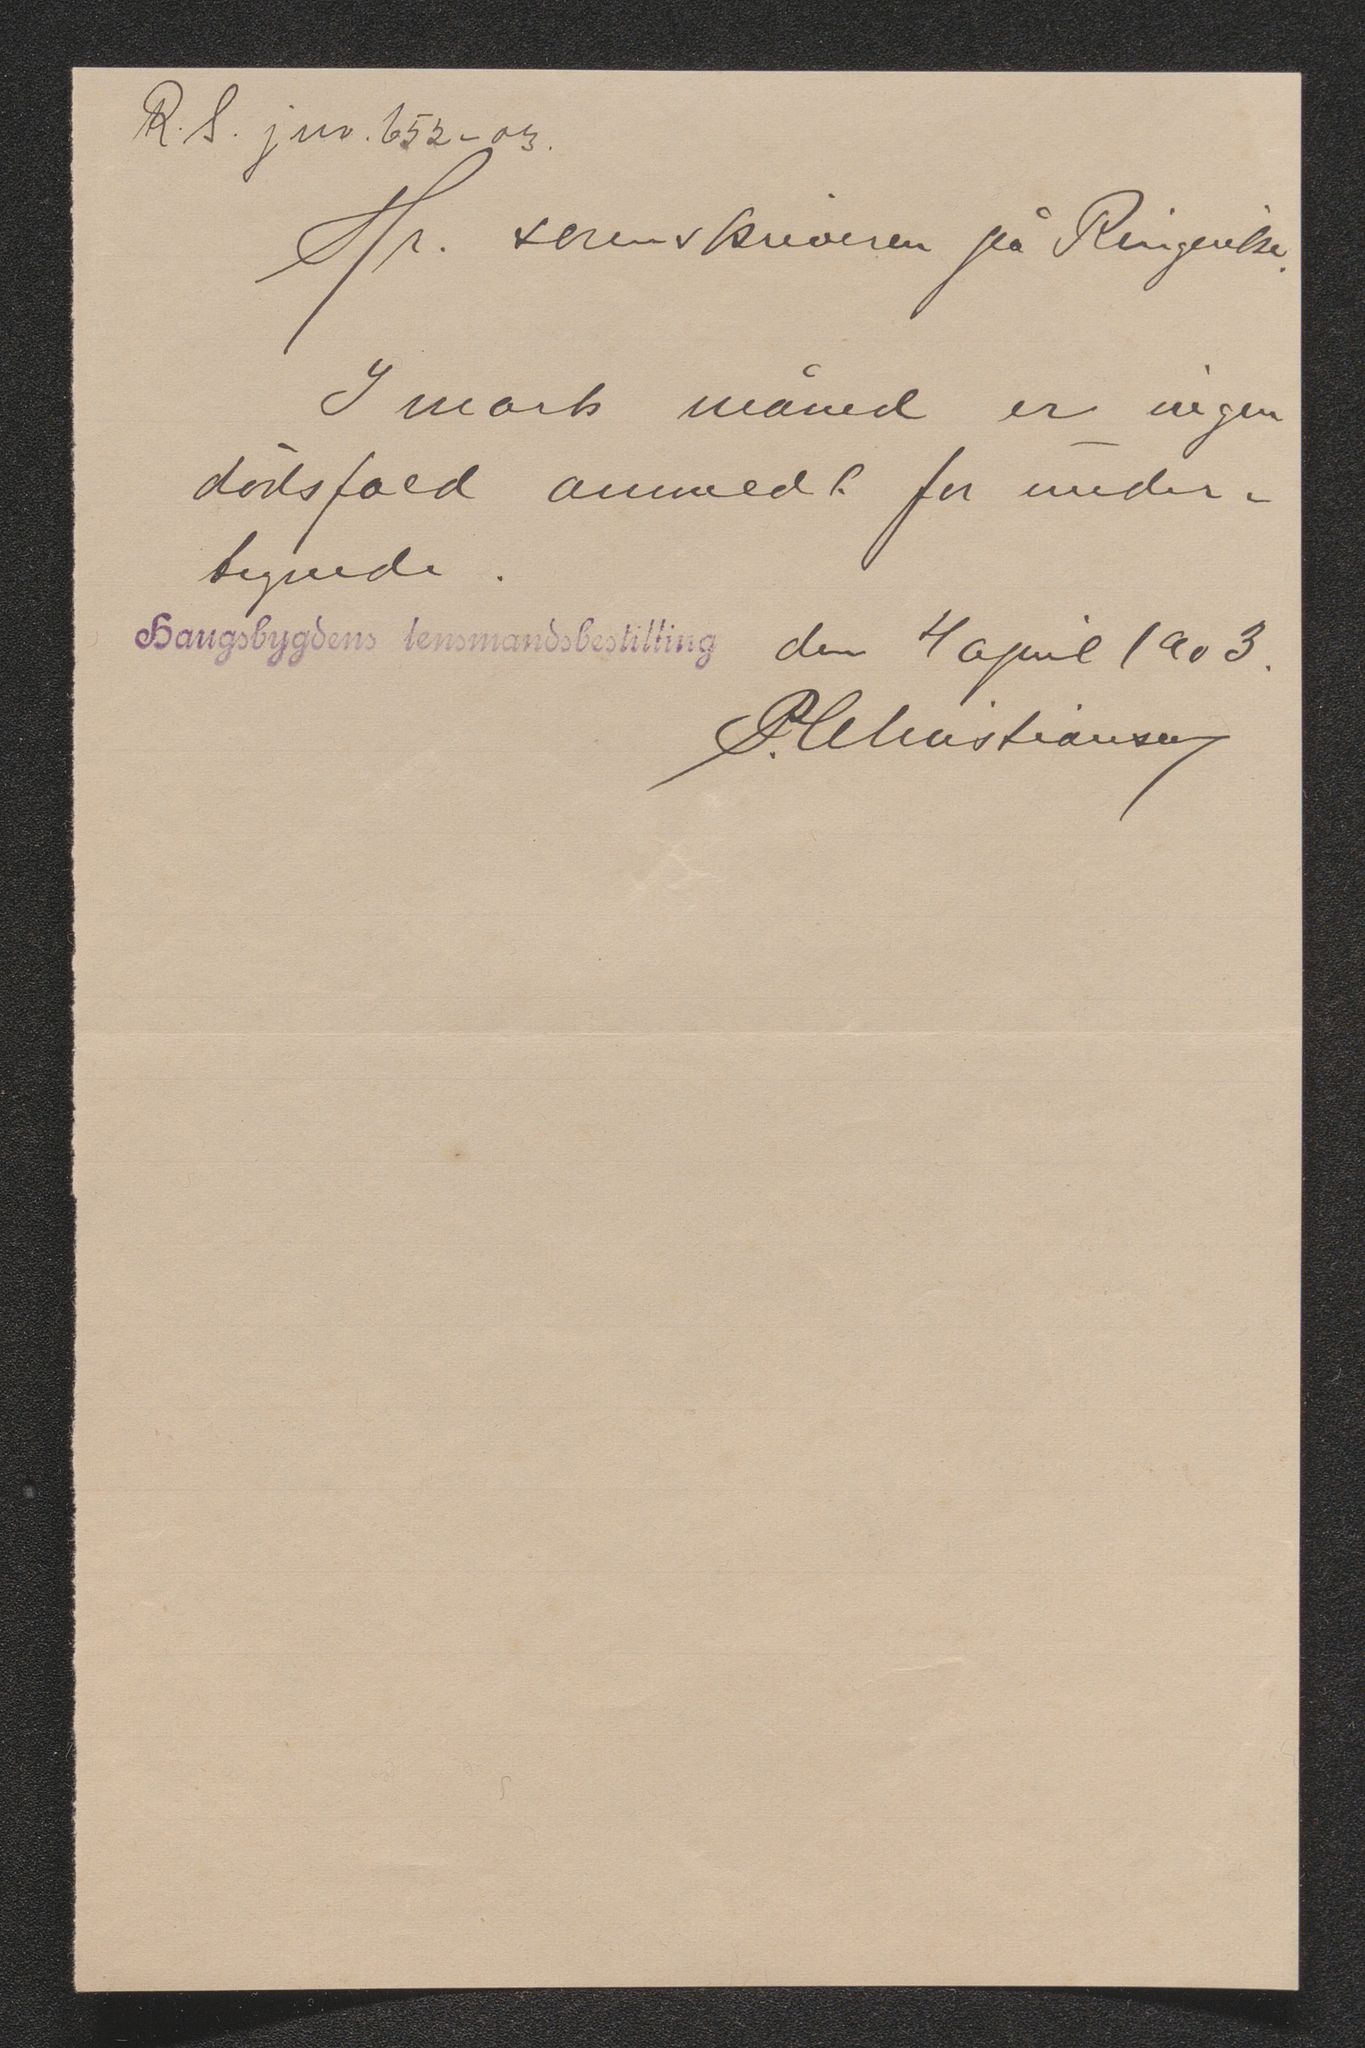 R. S. j no. 652-03.
Hr. sorenskriveren på Ringerike.
I mars måned er ingen
dödsfald anmeldt for under-
tegnede.
Haugsbygdens lensmandsbestilling den 4 april 1903.
P. Christiansen